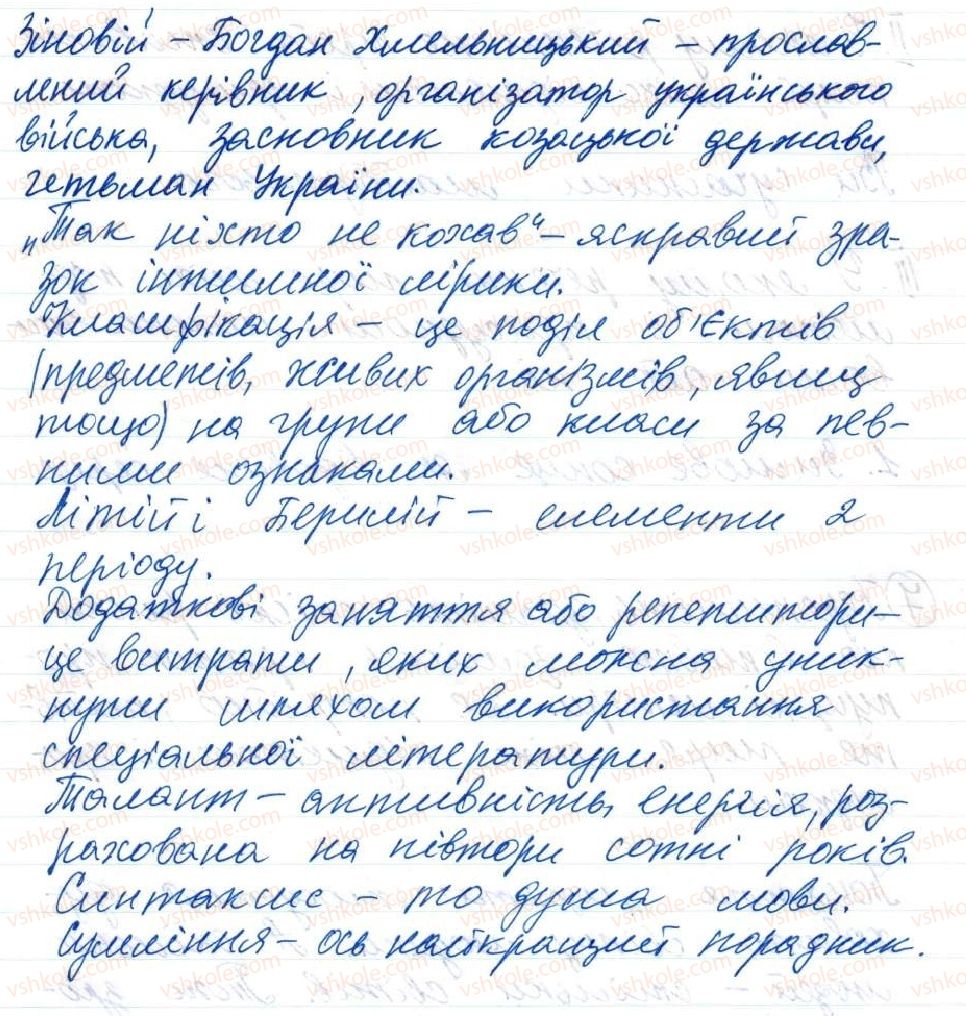 Зіновій – Богдан Хмельницький – прослав-
лений керівник, організатор українського
війська, засновник козацької держави,
гетьман України.
„Так ніхто не кохав“ – яскравий зра-
зок інтимної лірики.
Класифікація – це поділ об'єктів
(предметів, живих організмів, явищ
тощо) на групи або класи за пев-
ними ознаками.
Літій і Берилій – елементи 2
періоду.
Додаткові заняття або репетитори –
це витрати, яких можна уник-
нути шляхом використання
спеціальної літератури.
Талант – активність, енергія, роз-
рахована на півтори сотні років.
Синтаксис – то душа мови.
Сумління – ось найкращий порадник.